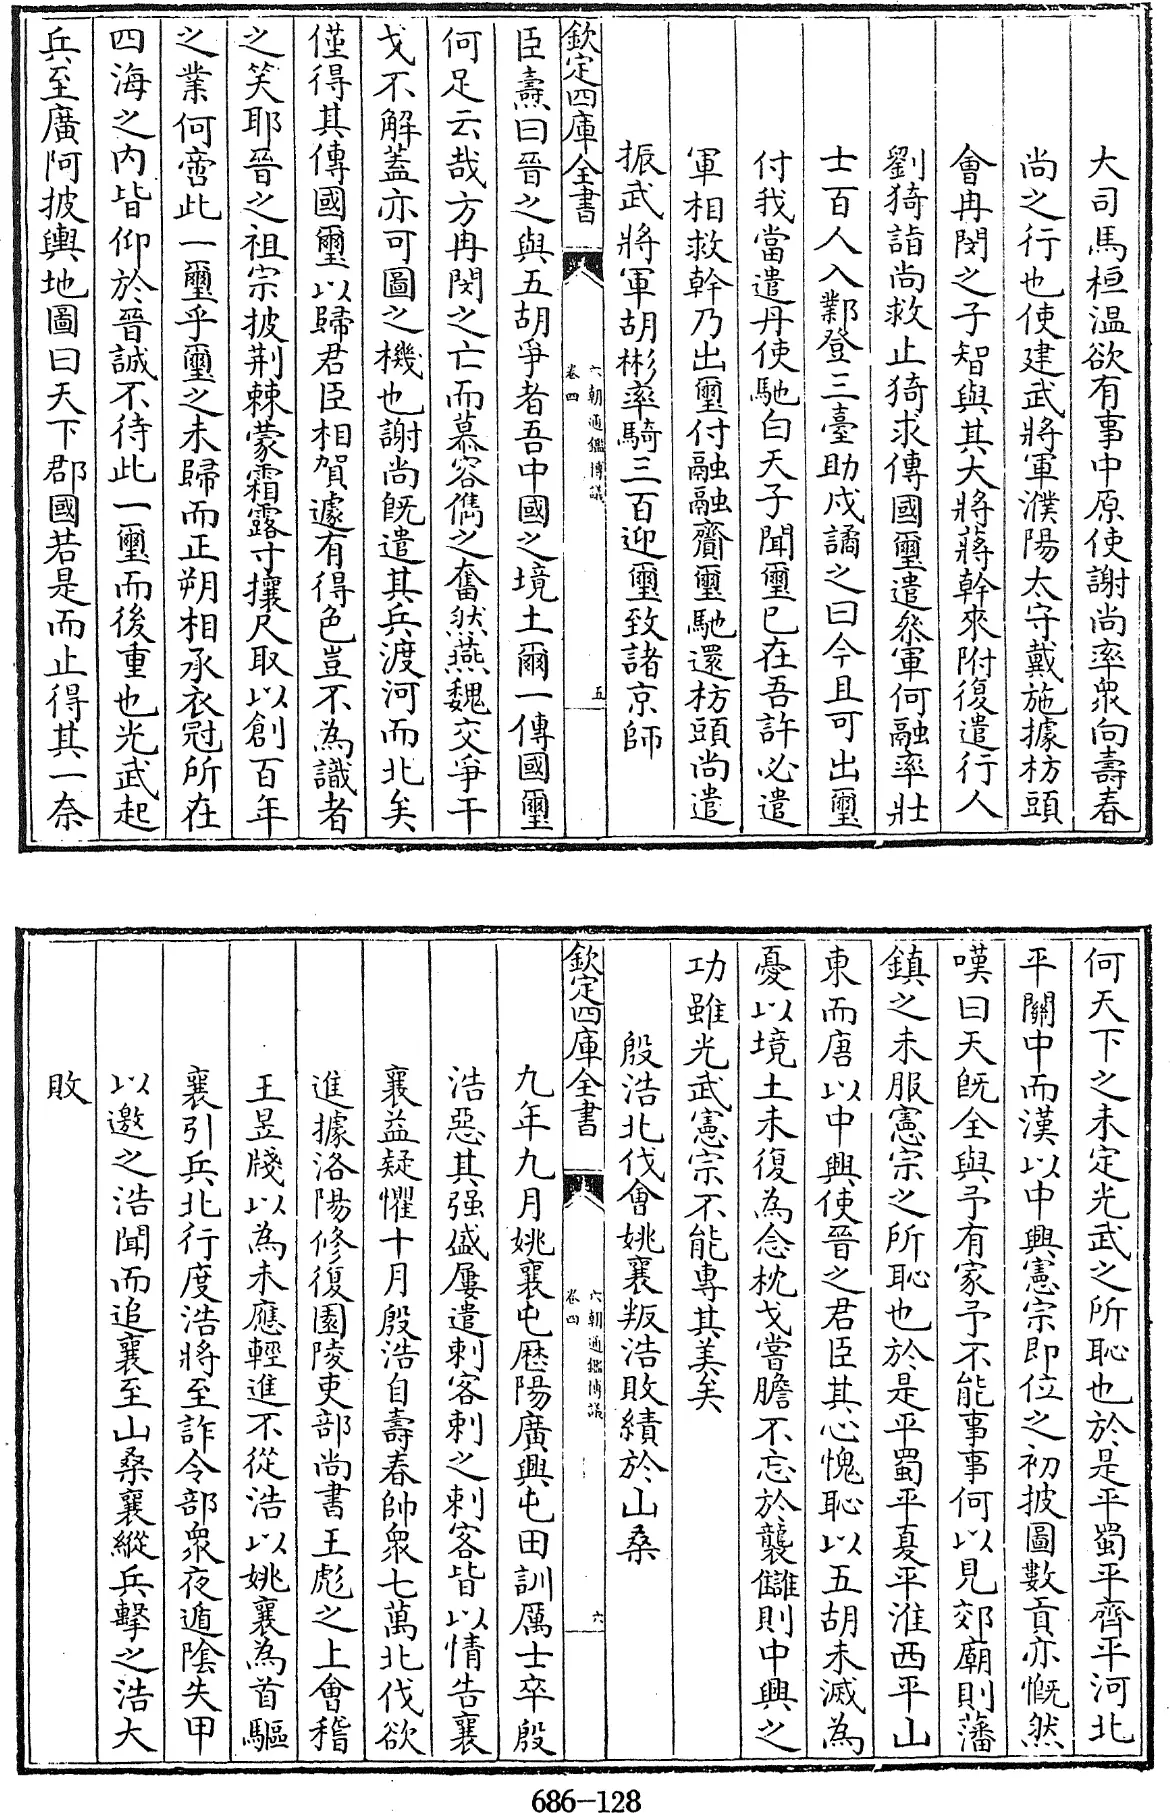 大司馬桓温欲有事中原使謝尚率衆向壽春
尚之行也使建武將軍濮陽太守戴施據枋頭
會冉閔之子智與其大將蔣幹來附復遣行人
劉猗詣尚救止猗求傳國璽遣叅軍何融率壯
士百人入鄴登三臺助戍譎之曰今且可出璽
付我當遣丹使馳白天子聞璽已在吾許必遣
軍相救幹乃出璽付融融齎璽馳還枋頭尚遣
振武將軍胡彬率騎三百迎璽致諸京師
欽定四庫全書
六朝通鑑博議
卷四
五
臣燾曰晉之與五胡爭者吾中國之境土爾一傳國璽
何足云哉方冉閔之亡而慕容儁之奮然燕魏交爭干
戈不解蓋亦可圖之機也謝尚既遣其兵渡河而北矣
僅得其傳國璽以歸君臣相賀遽有得色豈不為識者
之笑耶晉之祖宗披荆棘蒙霜露寸攘尺取以創百年
之業何啻此一璽乎璽之未歸而正朔相承衣冠所在
四海之内皆仰於晉誠不待此一璽而後重也光武起
兵至廣阿披輿地圖曰天下郡國若是而止得其一奈
何天下之未定光武之所恥也於是平蜀平齊平河北
平關中而漢以中興憲宗即位之初披圖數貢亦慨然
嘆曰天既全與予有家予不能事事何以見郊廟則藩
鎮之未服憲宗之所恥也於是平蜀平夏平淮西平山
東而唐以中興使晉之君臣其心愧恥以五胡未滅為
憂以境土未復為念枕戈嘗膽不忘於襲讎則中興之
功雖光武憲宗不能專其美矣
殷浩北伐會姚襄叛浩敗績於山桑
欽定四庫全書
六朝通鑑博議
卷四
六
九年九月姚襄屯厯陽廣興屯田訓厲士卒殷
浩惡其强盛屢遣刺客刺之刺客皆以情告襄
襄益疑懼十月殷浩自壽春帥衆七萬北伐欲
進據洛陽修復園陵吏部尚書王彪之上會稽
王昱牋以為未應輕進不從浩以姚襄為首驅
襄引兵北行度浩將至詐令部衆夜遁陰失甲
以邀之浩聞而追襄至山桑襄縱兵擊之浩大
敗
686-128